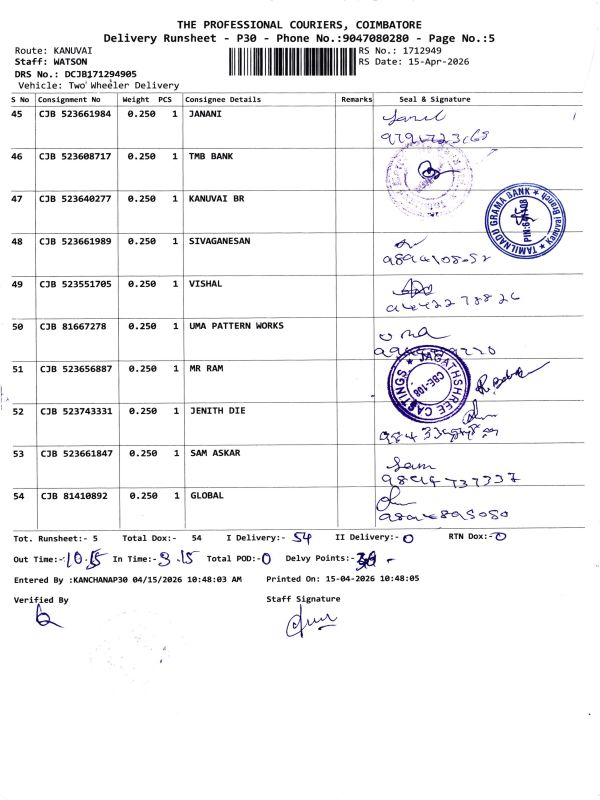 THE PROFESSIONAL COURIERS, COIMBATORE
Delivery Runsheet - P30 - Phone No.:9047080280 - Page No.:5
Route: KANUVAI RS No.: 1712949
Staff: WATSON RS Date: 15-Apr-2026
DRS No.: DCJB171294905
Vehicle: Two Wheeler Delivery
S No Consignment No Weight PCS Consignee Details Remarks Seal & Signature
45 CJB 523661984 0.250 1 JANANI
46 CJB 523608717 0.250 1 TMB BANK
47 CJB 523640277 0.250 1 KANUVAI BR
TAMILNADU GRAMA BANK Kanuvai Branch
48 CJB 523661989 0.250 1 SIVAGANESAN
49 CJB 523551705 0.250 1 VISHAL
50 CJB 81667278 0.250 1 UMA PATTERN WORKS
uma
51 CJB 523656887 0.250 1 MR RAM
JAGATHSHREE CASTINGS CBE-108
52 CJB 523743331 0.250 1 JENITH DIE
53 CJB 523661847 0.250 1 SAM ASKAR
Sam
54 CJB 81410892 0.250 1 GLOBAL
Tot. Runsheet:- 5 Total Dox:- 54 I Delivery:- 54 II Delivery:- 0 RTN Dox:- 0
Out Time:- 10.15 In Time:- 3.15 Total POD:- 0 Delvy Points:-
Entered By :KANCHANAP30 04/15/2026 10:48:03 AM Printed On: 15-04-2026 10:48:05
Verified By Staff Signature